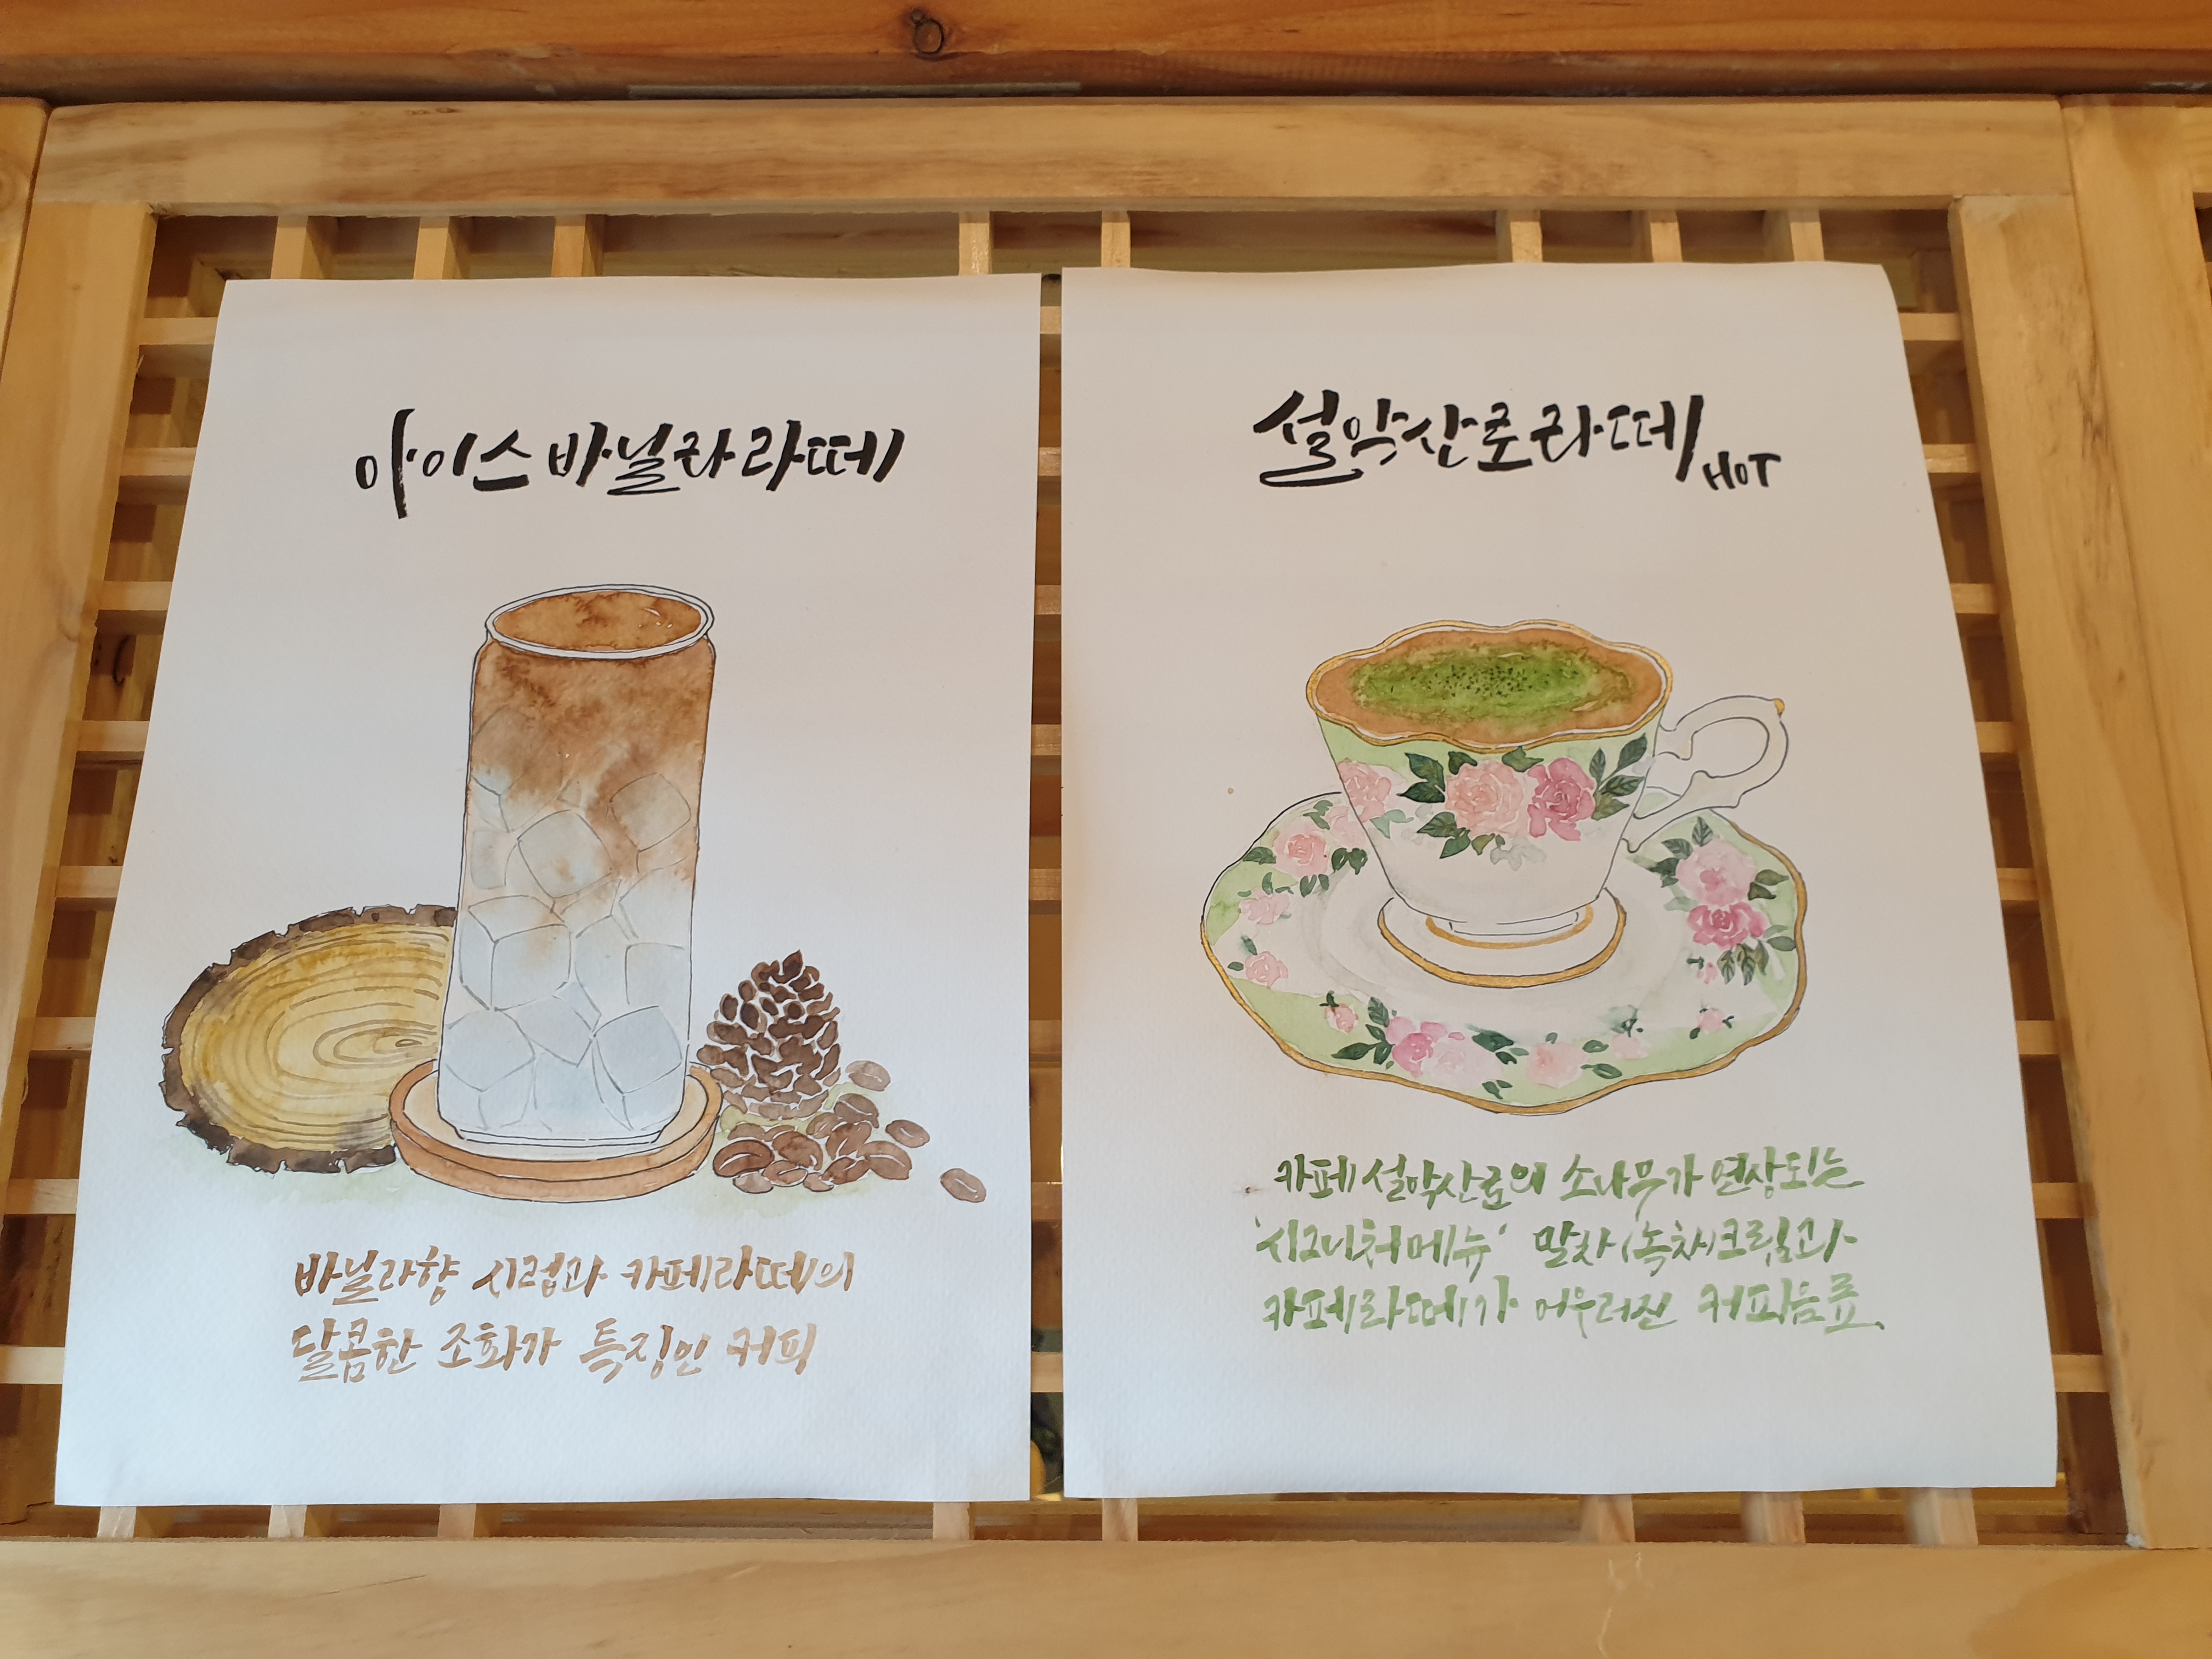 아이스바닐라라떼
바닐라향 시럽과 카페라떼의
달콤한 조화가 특징인 커피
설악산로라떼 HOT
카페 설악산로의 소나무가 연상되는
'시그니처메뉴' 말차(녹차)크림과
카페라떼가 어우러진 커피음료.